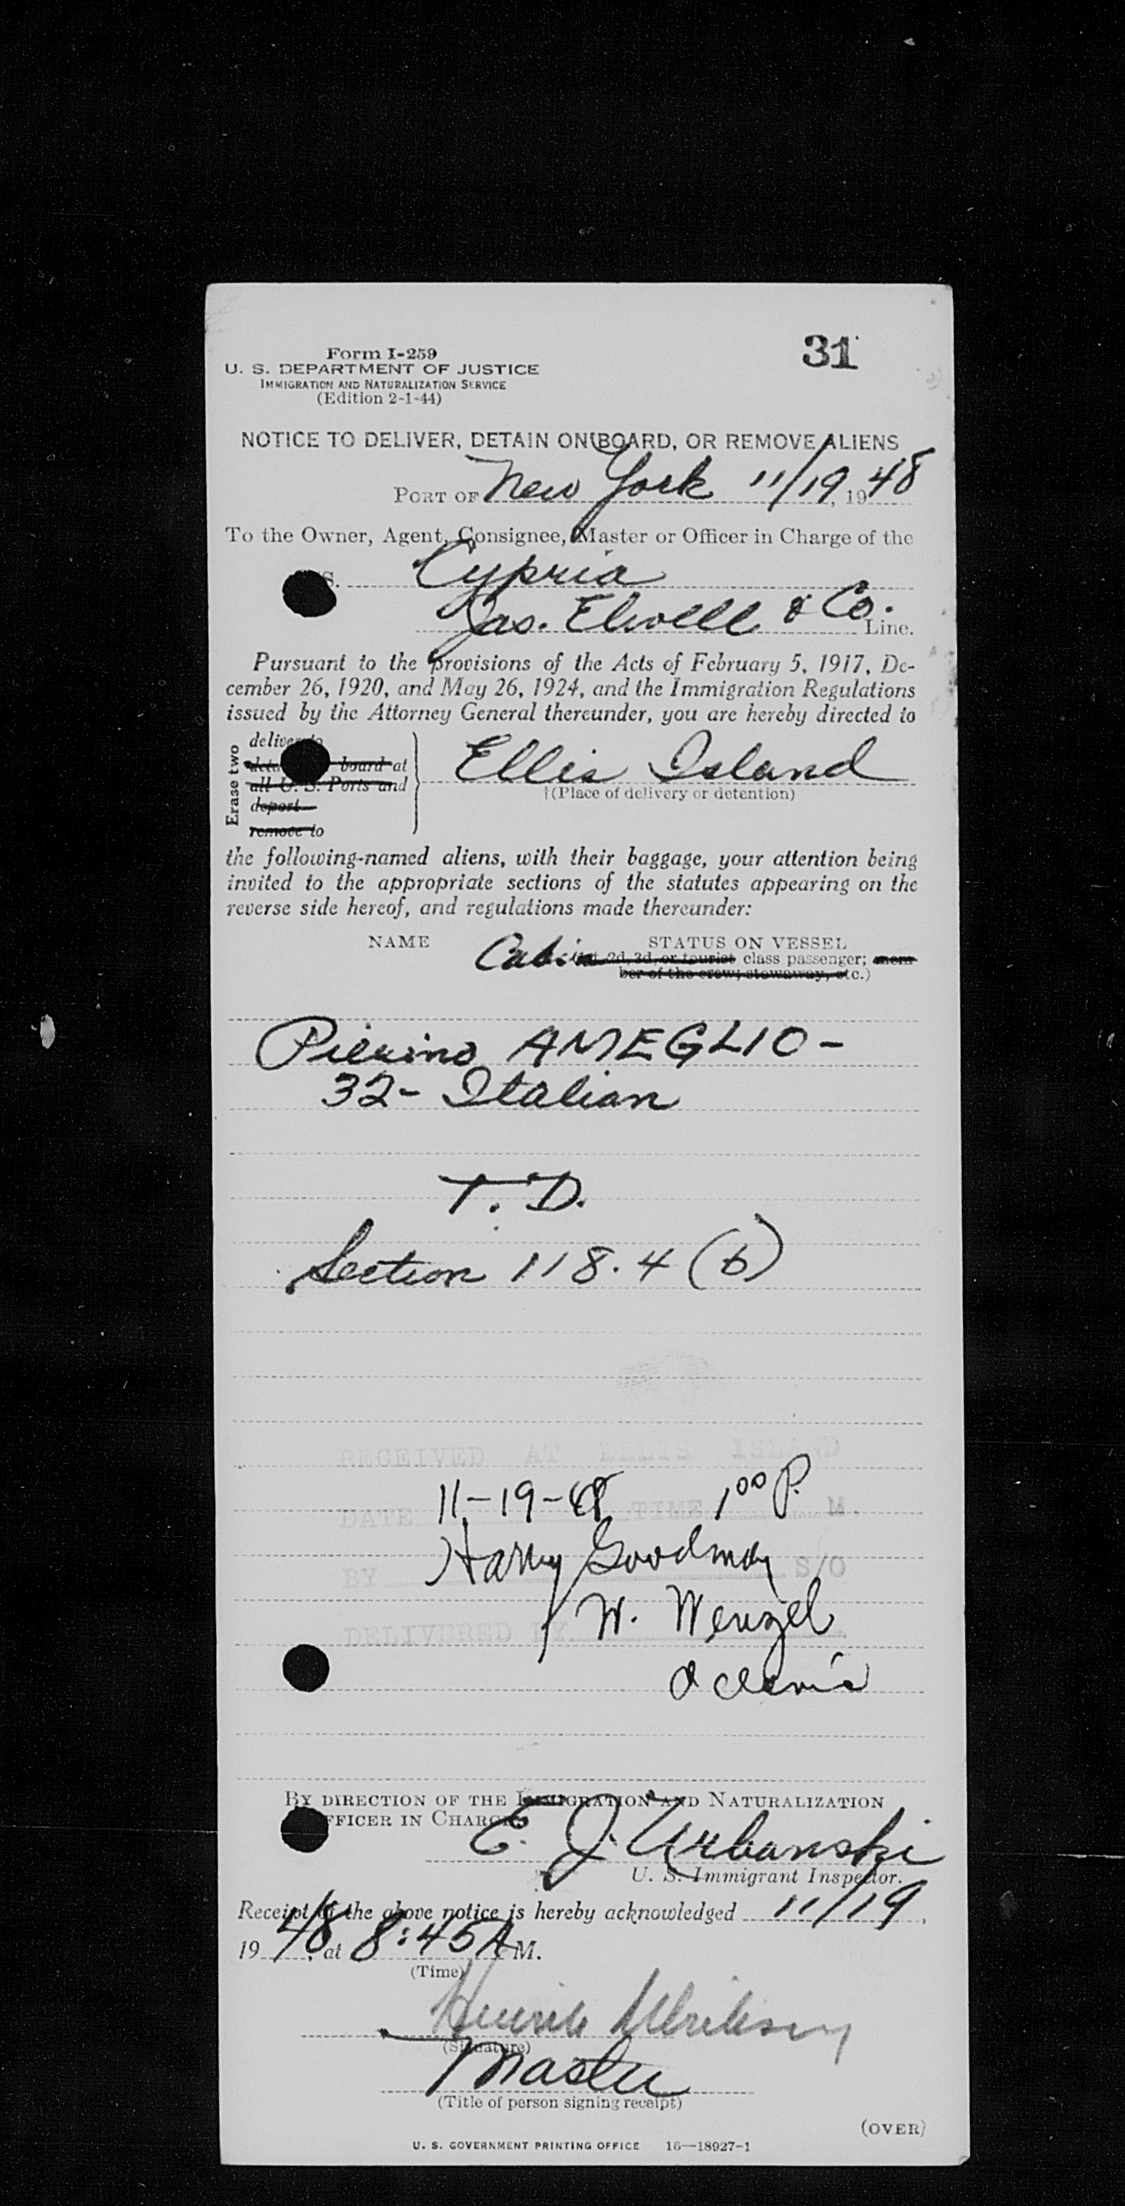 31
Form I-259
U. S. DEPARTMENT OF JUSTICE
IMMIGRATION AND NATURALIZATION SERVICE
(Edition 2-1-44)
NOTICE TO DELIVER, DETAIN ON BOARD, OR REMOVE ALIENS
PORT OF New York 11/19, 1948
To the Owner, Agent, Consignee, Master or Officer in Charge of the
S. Cypria
Jas. Elwell & Co. Line.
Pursuant to the provisions of the Acts of February 5, 1917, De-
cember 26, 1920, and May 26, 1924, and the Immigration Regulations
issued by the Attorney General thereunder, you are hereby directed to
Erase two
deliver to
board at
all U. S. Ports and
deport
remove to
Ellis Island
(Place of delivery or detention)
the following-named aliens, with their baggage, your attention being
invited to the appropriate sections of the statutes appearing on the
reverse side hereof, and regulations made thereunder:
NAME STATUS ON VESSEL
Cabin 2d, 3d, or tourist class passenger; mem-
ber of the crew; stowaway, etc.)
Pierino AMEGLIO -
32 - Italian
T. D.
Section 118.4 (b)
RECEIVED AT ELLIS ISLAND
DATE 11-19-48 TIME 1 00 P. M.
BY Harry Goodman S/O
DELIVERED BY W. Wenzel
By DIRECTION OF THE IMMIGRATION AND NATURALIZATION
OFFICER IN CHARGE
E. J. Urbanski
U. S. Immigrant Inspector.
Receipt of the above notice is hereby acknowledged 11/19,
1948, at 8:45 A M.
(Time)
Henrik Ulriksen
(Signature)
Master
(Title of person signing receipt)
(OVER)
U. S. GOVERNMENT PRINTING OFFICE 16—18927-1